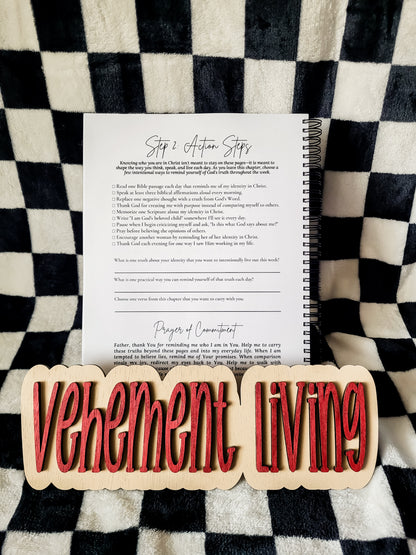 Step 2: Action Steps
Knowing who you are in Christ isn't meant to stay on these pages—it is meant to
shape the way you think, speak, and live each day. As you leave this chapter, choose a
few intentional ways to remind yourself of God's truth throughout the week.
□ Read one Bible passage each day that reminds me of my identity in Christ.
□ Speak at least three biblical affirmations aloud every morning.
□ Replace one negative thought with a truth from God's Word.
□ Thank God for creating me with purpose instead of comparing myself to others.
□ Memorize one Scripture about my identity in Christ.
□ Write "I am God's beloved child" somewhere I'll see it every day.
□ Pause when I begin criticizing myself and ask, "Is this what God says about me?"
□ Pray before believing the opinions of others.
□ Encourage another woman by reminding her of her identity in Christ.
□ Thank God each evening for one way I saw Him working in my life.
What is one truth about your identity that you want to intentionally live out this week?
What is one practical way you can remind yourself of that truth each day?
Choose one verse from this chapter that you want to carry with you.
Prayer of Commitment
Father, thank You for reminding me who I am in You. Help me to carry
these truths beyond these pages and into my everyday life. When I am
tempted to believe lies, remind me of Your promises. When comparison
steals my joy, redirect my eyes back to You. Help me to walk with
Vehement Living